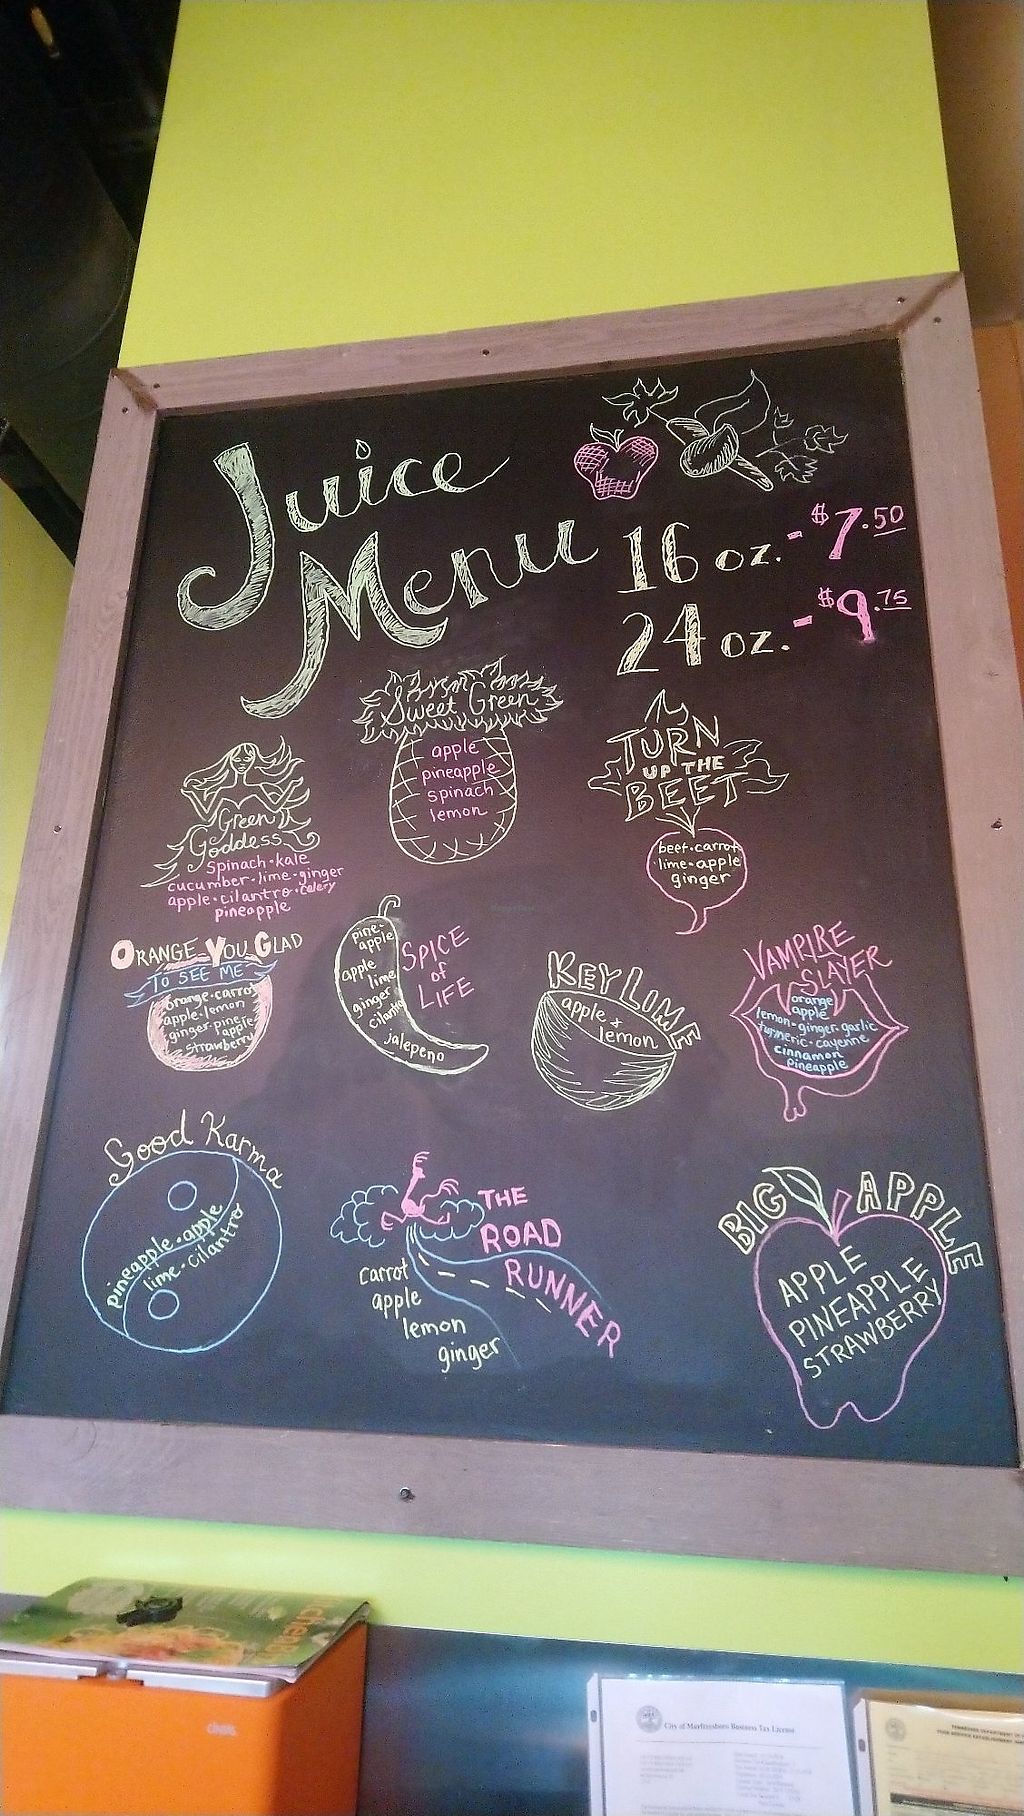 Juice
Menu
16 oz. - $7.50
24 oz. - $9.75
Sweet Green
apple
pineapple
spinach
lemon
TURN
UP THE
BEET
beet·carrot
lime·apple
ginger
Green
Goddess
Spinach·kale
cucumber·lime·ginger
apple·cilantro·celery
pineapple
ORANGE YOU GLAD
TO SEE ME
orange·carrot
apple·lemon
ginger·pine
apple
strawberry
SPICE
of
LIFE
pine-
apple
apple
lime
ginger
cilantro
jalepeno
KEY LIME
apple &
lemon
VAMPIRE
SLAYER
orange
apple
lemon·ginger·garlic
turmeric·cayenne
cinnamon
pineapple
Good Karma
pineapple·apple
lime·cilantro
THE
ROAD
RUNNER
carrot
apple
lemon
ginger
BIG APPLE
APPLE
PINEAPPLE
STRAWBERRY
City of Murfreesboro Business Tax License